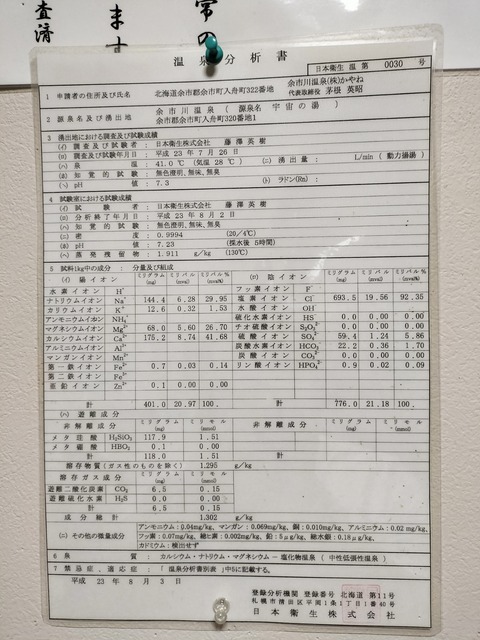 査済
ます
常の
温泉分析書
日本衛生 温 第 0030 号
1 申請者の住所及び氏名 北海道余市郡余市町入舟町322番地 余市川温泉(株)かやね
代表取締役 茅根 英昭
2 源泉名及び湧出地 余市川温泉 (源泉名 宇宙の湯)
余市郡余市町入舟町320番地1
3 湧出地における調査及び試験成績
(イ) 調査及び試験者 : 日本衛生株式会社 藤澤英樹
(ロ) 調査及び試験年月日 : 平成 23 年 7 月 26 日
(ハ) 泉温 : 41.0 ℃ (気温 28 ℃) (ニ) 湧出量 : L/min (動力揚湯)
(ホ) 知覚的試験 : 無色澄明、無味、無臭
(ヘ) pH値 : 7.3 (ト) ラドン(Rn) :
4 試験室における試験成績
(イ) 試験者 : 日本衛生株式会社 藤澤英樹
(ロ) 分析終了年月日 : 平成 23 年 8 月 2 日
(ハ) 知覚的試験 : 無色澄明、無味、無臭
(ニ) 密度 : 0.9994 (20/4℃)
(ホ) pH値 : 7.23 (採水後 5時間)
(ヘ) 蒸発残留物 : 1.911 g/kg (130℃)
5 試料1kg中の成分 : 分量及び組成
(イ) 陽イオン ミリグラム (mg) ミリバル (mval) ミリバル% (mval%) (ロ) 陰イオン ミリグラム (mg) ミリバル (mval) ミリバル% (mval%)
水素イオン H⁺ フッ素イオン F⁻
ナトリウムイオン Na⁺ 144.4 6.28 29.95 塩素イオン Cl⁻ 693.5 19.56 92.35
カリウムイオン K⁺ 12.6 0.32 1.53 水酸イオン OH⁻
アンモニウムイオン NH₄⁺ 硫化水素イオン HS⁻ 0.0 0.00 0.00
マグネシウムイオン Mg²⁺ 68.0 5.60 26.70 チオ硫酸イオン S₂O₃²⁻ 0.0 0.00 0.00
カルシウムイオン Ca²⁺ 175.2 8.74 41.68 硫酸イオン SO₄²⁻ 59.4 1.24 5.86
アルミニウムイオン Al³⁺ 炭酸水素イオン HCO₃⁻ 22.2 0.36 1.70
マンガンイオン Mn²⁺ 炭酸イオン CO₃²⁻ 0.0 0.00 0.00
第一鉄イオン Fe²⁺ 0.7 0.03 0.14 リン酸イオン HPO₄²⁻ 0.9 0.02 0.09
第二鉄イオン Fe³⁺
亜鉛イオン Zn²⁺ 0.1 0.00 0.00
計 401.0 20.97 100. 計 776.0 21.18 100.
(ハ) 遊離成分
非解離成分 ミリグラム (mg) ミリモル (mmol) 非解離成分 ミリグラム (mg) ミリモル (mmol)
メタ珪酸 H₂SiO₃ 117.9 1.51
メタ硼酸 HBO₂ 0.1 0.00
計 118.0 1.51 計
溶存物質(ガス性のものを除く) 1.295 g/kg
溶存ガス成分 ミリグラム (mg) ミリモル (mmol)
遊離二酸化炭素 CO₂ 6.5 0.15
遊離硫化水素 H₂S 0.0 0.00
計 6.5 0.15
成分総計 1.302 g/kg
(ニ) その他の微量成分 アンモニウム:0.04mg/kg, マンガン:0.069mg/kg, 銅:0.010mg/kg, アルミニウム:0.02 mg/kg,
フッ素:0.07mg/kg, 総ヒ素:0.002mg/kg, 鉛:5μg/kg, 総水銀:0.18μg/kg,
カドミウム:検出せず
6 泉質 : カルシウム・ナトリウム・マグネシウム-塩化物温泉 (中性低張性温泉)
7 禁忌症、適応症 : 「温泉分析書別表」中5に記載する。
平成 23 年 8 月 3 日
登録分析機関 登録番号 北海道 第11号
札幌市清田区平岡1条1丁目1番40号
日本衛生株式会社